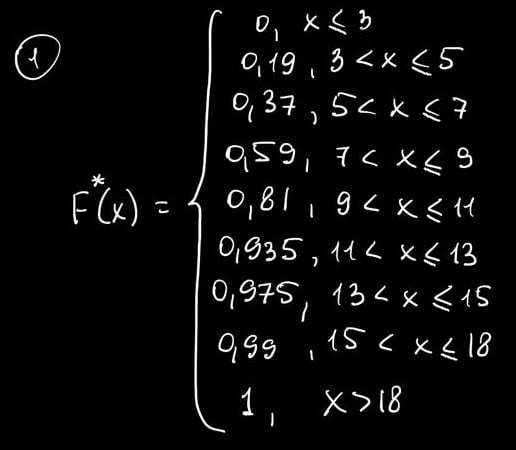 1
0, x ≤ 3
0,19, 3 < x ≤ 5
0,37, 5 < x ≤ 7
0,59, 7 < x ≤ 9
F*(x) =
0,81, 9 < x ≤ 11
0,935, 11 < x ≤ 13
0,975, 13 < x ≤ 15
0,99, 15 < x ≤ 18
1, x > 18